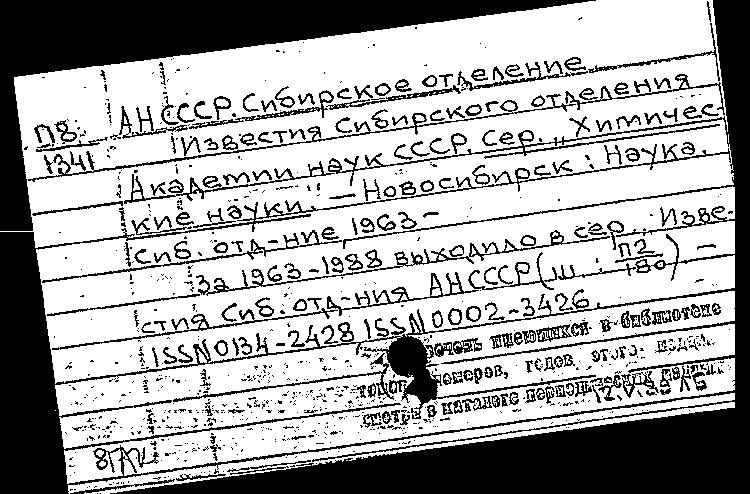 АН СССР. Сибирское отделение.
П8
1341
Известия Сибирского отделения
Академии наук СССР. Сер. „Химичес-
кие науки." — Новосибирск : Наука.
Сиб. отд-ние, 1963 –
За 1963-1988 выходило в сер. „Изве-
стия Сиб. отд-ния АН СССР (ш. : П2/180) –
ISSN 0134-2428 ISSN 0002-3426.
имеющихся в библиотеке
номеров, годов этого издан.
смотри в каталоге периодических издан.